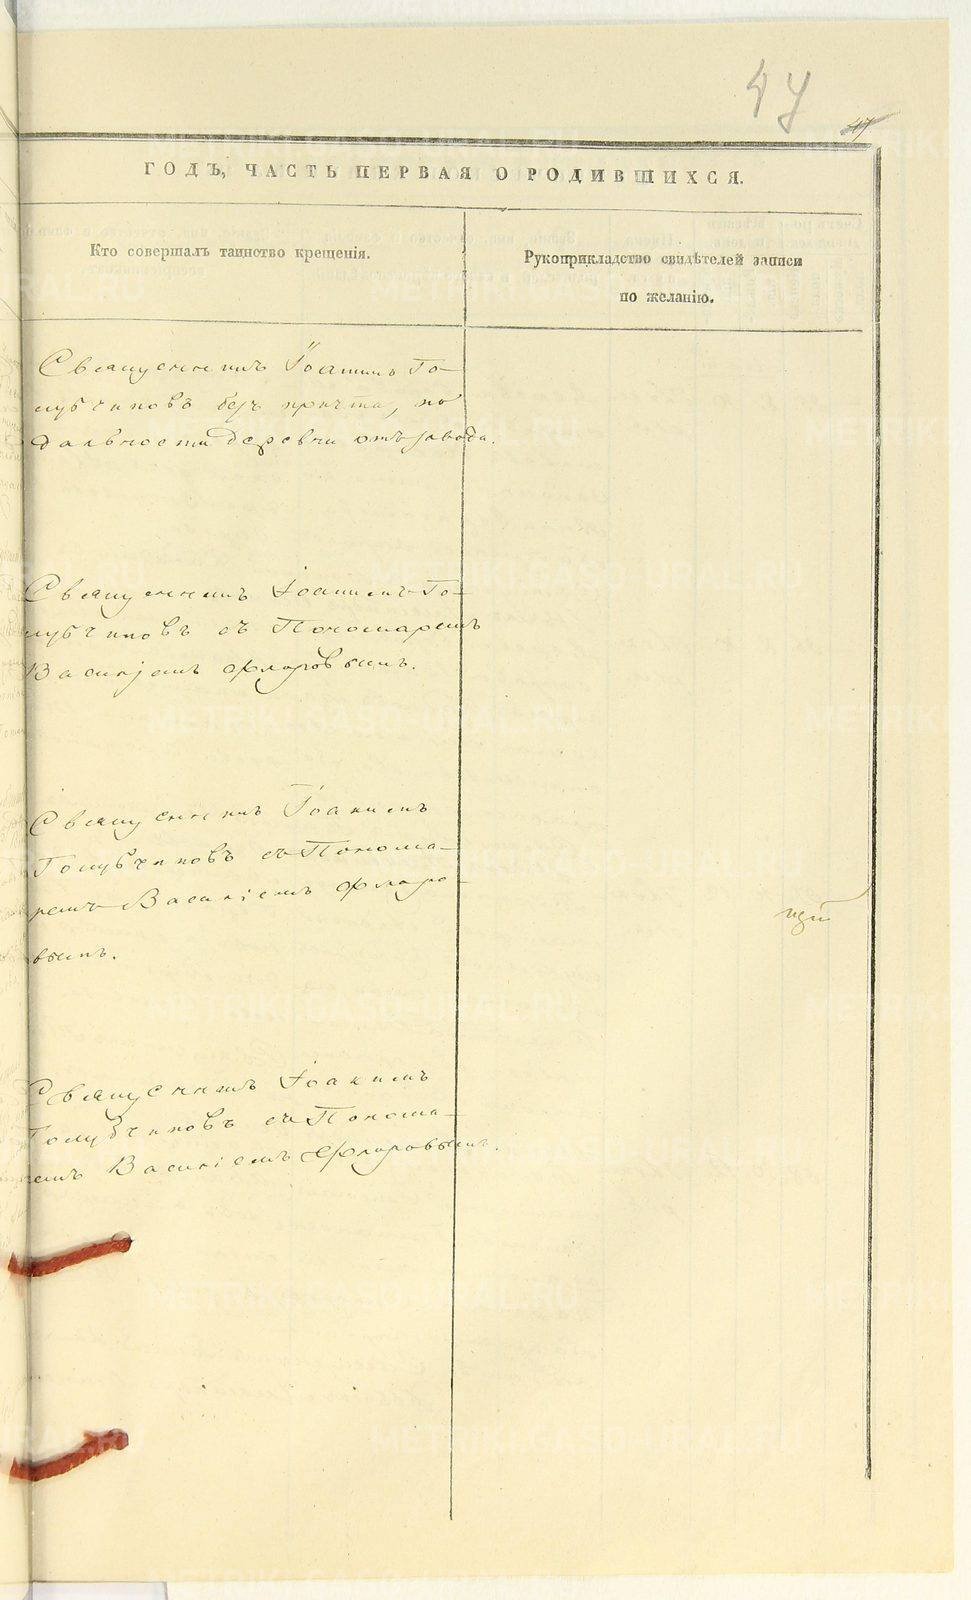 47
47
ГОДЪ, ЧАСТЬ ПЕРВАЯ О РОДИВШИХСЯ.
Кто совершалъ таинство крещенія.
Рукоприкладство свидѣтелей записи
по желанію.
Священникъ Іоакимъ Го-
лубчиковъ безъ причта, по
дальности деревни отъ завода.
Священникъ Іоакимъ Го-
лубчиковъ съ Пономаремъ
Василіемъ Флоровымъ.
Священникъ Іоакимъ
Голубчиковъ съ Понома-
ремъ Василіемъ Флоро-
вымъ.
Священникъ Іоакимъ
Голубчиковъ съ Понома-
ремъ Василіемъ Флоровымъ.
METRIKI.GASO-URAL.RU